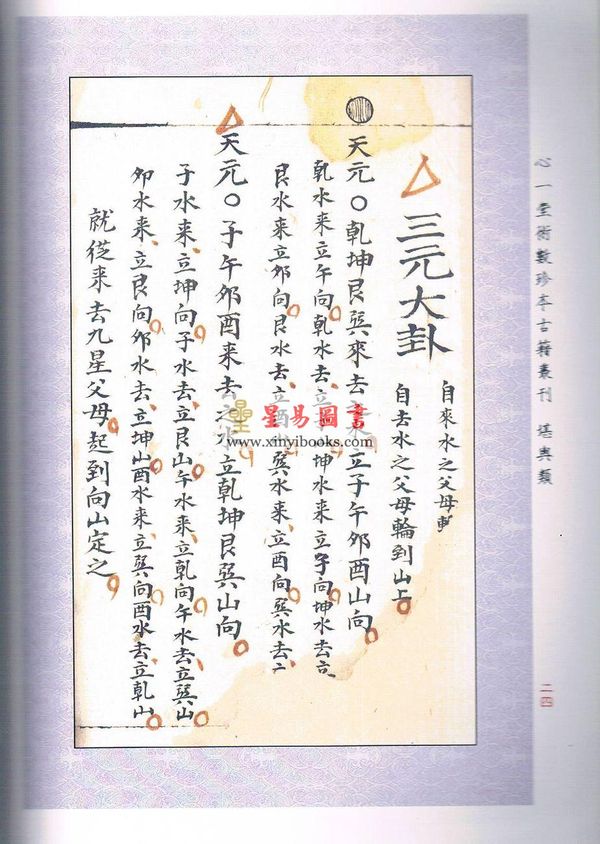 心一堂術數珍本古籍叢刊 堪輿類
二四
三元大卦
自來水之父母
自去水之父母輪到山上
天元〇乾坤艮巽來去立子午卯酉山向
乾水来立午向乾水去立子坤水来立子向坤水去
艮水来立卯向艮水去立酉巽水来立酉向巽水去
天元〇子午卯酉来去之水立乾坤艮巽山向
子水来立坤向子水去立艮山午水来立乾向午水去立巽山
卯水来立艮向卯水去立坤山酉水来立巽向酉水去立乾山
就從来去九星父母起到向山定之
星易圖書
www.xinyibooks.com